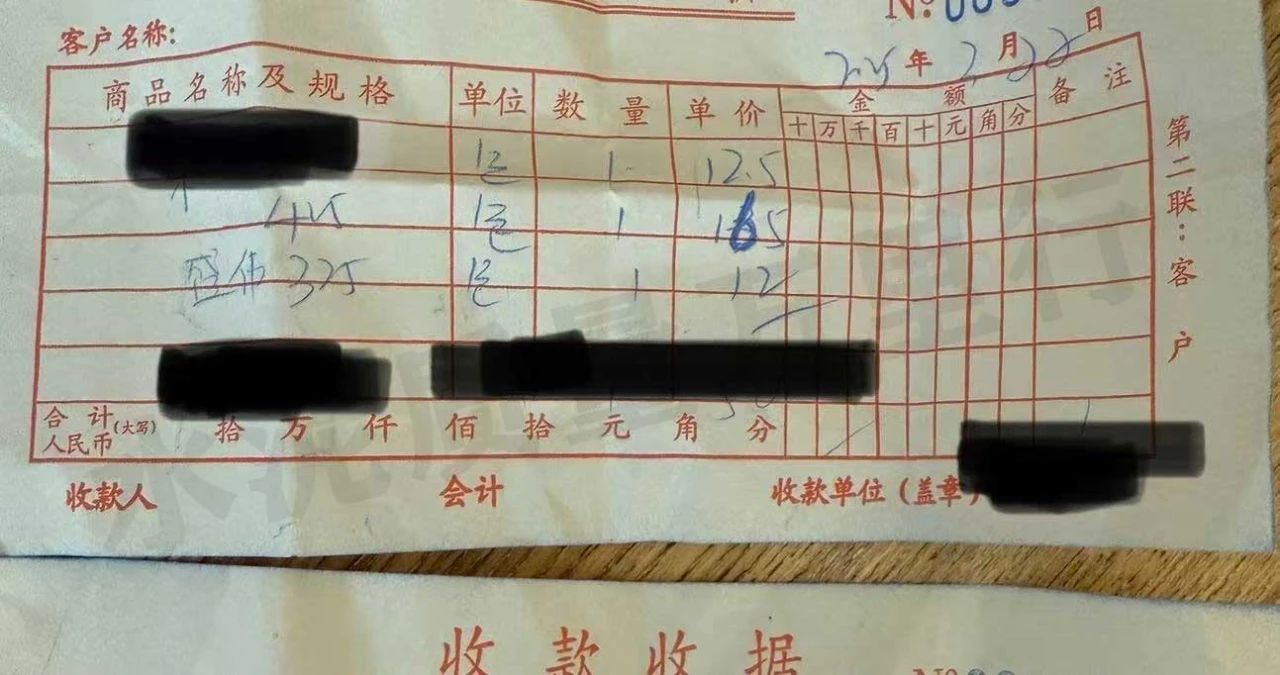 No:
客户名称:
25年2月22日
商品名称及规格 单位 数量 单价 金额 备注
十 万 千 百 十 元 角 分
包 1 12.5
425 包 1
盛伟 325 包 1 12
合计 人民币 (大写) 拾 万 仟 佰 拾 元 角 分
收款人 会计 收款单位(盖章)
第二联:客户
收款收据